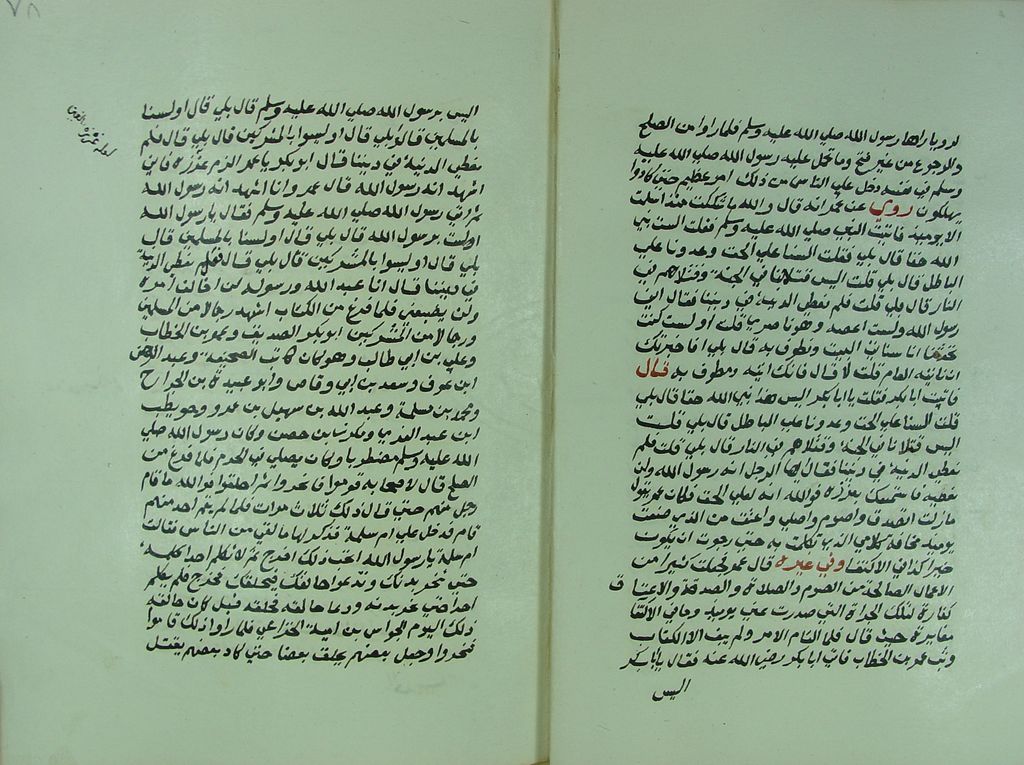 لرويا راها رسول الله صلي الله عليه وسلم فلما راوا من الصلح
والرجوع من غير فتح وما تحمل عليه رسول الله صلي الله عليه
وسلم في نفسه دخل علي الناس من ذلك امر عظيم حتي كادوا
يهلكون روي عن عمر انه قال والله ما شككت منذ اسلمت
الا يوميذ فاتيت النبي صلي الله عليه وسلم فقلت الست نبي
الله حقا قال بلي فقلت السنا علي الحق وعدونا علي
الباطل قال بلي قلت اليس قتلانا في الجنة وقتلاهم في
النار قال بلي قلت فلم نعطي الدنية في ديننا فقال اني
رسول الله ولست اعصيه وهو ناصري قلت اولست كنت
تحدثنا انا سناتي البيت ونطوف به قال بلي افاخبرتك
انا ناتيه العام قلت لا قال فانك اتيه ومطوف به قال
فاتيت ابا بكر فقلت يا ابا بكر اليس هذا نبي الله حقا قال بلي
قلت السنا علي الحق وعدونا علي الباطل قال بلي قلت
اليس قتلانا في الجنة وقتلاهم في النار قال بلي قلت فلم
نعطي الدنية في ديننا فقال ايها الرجل انه رسول الله ولن
يعصيه فاستمسك بغرزه فوالله انه لعلي الحق فكان عمر يقول
ما زلت اتصدق واصوم واصلي واعتق من الذي صنعت
يوميذ مخافة كلامي الذي تكلمت به حتي رجوت ان يكون
خيرا كذا في الاكتفا وفي غيره قال عمر فعملت كثيرا من
الاعمال الصالحة من الصوم والصلاة والصدقة والاعتاق
كفارة لتلك الجراة التي صدرت عني يوميذ وفي الاكتفا
مغايرة حيث قال فلما التام الامر ولم يبق الا الكتاب
وثب عمر بن الخطاب فاتي ابا بكر رضي الله عنه فقال يا ابا بكر
اليس
اليس برسول الله صلي الله عليه وسلم قال بلي قال اولسنا
بالمسلمين قال بلي قال اوليسوا بالمشركين قال بلي قال فلم
نعطي الدنية في ديننا فقال ابو بكر يا عمر الزم غرزه فاني
اشهد انه رسول الله قال عمر وانا اشهد انه رسول الله
ثم اتي رسول الله صلي الله عليه وسلم فقال يا رسول الله
اولست برسول الله قال بلي قال اولسنا بالمسلمين قال
بلي قال اوليسوا بالمشركين قال بلي قال فلم نعطي الدنية
في ديننا قال انا عبد الله ورسوله لن اخالف امره
ولن يضيعني فلما فرغ من الكتاب اشهد رجالا من المسلمين
ورجالا من المشركين ابو بكر الصديق وعمر بن الخطاب
وعلي بن ابي طالب وهو كان كاتب الصحيفة وعبد الرحمن
ابن عوف وسعد بن ابي وقاص وابو عبيدة بن الجراح
ومحمد بن مسلمة وعبد الله بن سهيل بن عمرو وحويطب
ابن عبد العزي ومكرز بن حفص وكان رسول الله صلي
الله عليه وسلم مضطربا وكان يصلي في الحرم فلما فرغ من
الصلح قال لاصحابه قوموا فانحروا ثم احلقوا فوالله ما قام
رجل منهم حتي قال ذلك ثلاث مرات فلما لم يقم احد منهم
قام فدخل علي ام سلمة فذكر لها ما لقي من الناس فقالت
ام سلمة يا رسول الله اتحب ذلك اخرج ثم لا تكلم احدا كلمة
حتي تنحر بدنك وتدعوا حالقك فيحلقك فخرج فلم يكلم
احدا حتي نحر بدنه ودعا حالقه فحلقه قيل كان حالقه
ذلك اليوم خراش بن امية الخزاعي فلما راوا ذلك قاموا
فنحروا وجعل بعضهم يحلق بعضا حتي كاد بعضهم يقتل